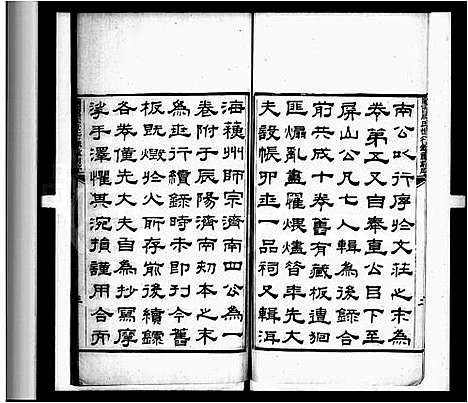 南公以行序於文莊之末為
卷第五又自奉直公目下至
屏山公凡七人輯為後錄合
前共成十卷舊有藏板遭狪
匪煽亂盡罹煨燼昔年先大
夫設帳卯世一品祠又輯洱
海蘋州師宗濟南四公為一
卷附于辰陽濟南初本之末
為世行續錄時未即刊今舊
板既燬於火所存前後續錄
各卷僅先大夫自為抄寫摩
挲手澤懼其沉損謹用合而